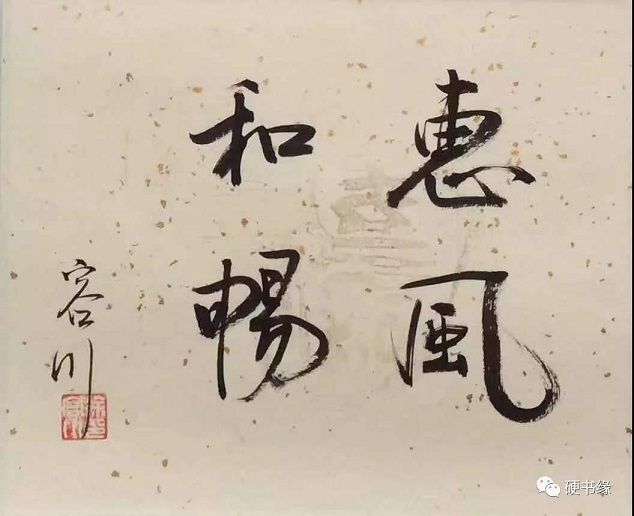 惠風
和暢
容川
硬书缘